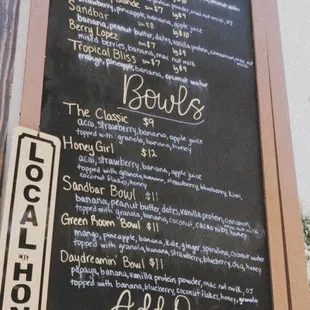 strawberry, pineapple, banana, apple juice
Sandbar sm $8 lg $10
banana, peanut butter, dates, vanilla protein, cinnamon,
Berry Lopez sm $7 lg $9
mixed berries, banana, mac nut milk
Tropical Bliss sm $7 lg $9
mango, pineapple, banana, coconut water
Bowls
The Classic $9
acai, strawberry, banana, apple juice
topped with granola, banana, honey
Honey Girl $12
acai, strawberry, banana, apple juice
topped with granola, banana, strawberry, blueberry, kiwi,
coconut flakes, honey
Sandbar Bowl $11
banana, peanut butter, dates, vanilla protein, cinnamon,
mac nut milk
topped with granola, banana, coconut, cacao nibs, honey
Green Room Bowl $11
mango, pineapple, banana, kale, ginger, spirulina, coconut water
topped with granola, banana, strawberry, blueberry, chia, honey
Daydreamin' Bowl $11
papaya, banana, vanilla protein powder, mac nut milk,
topped with banana, blueberry, coconut flakes, honey, granola
LOCAL